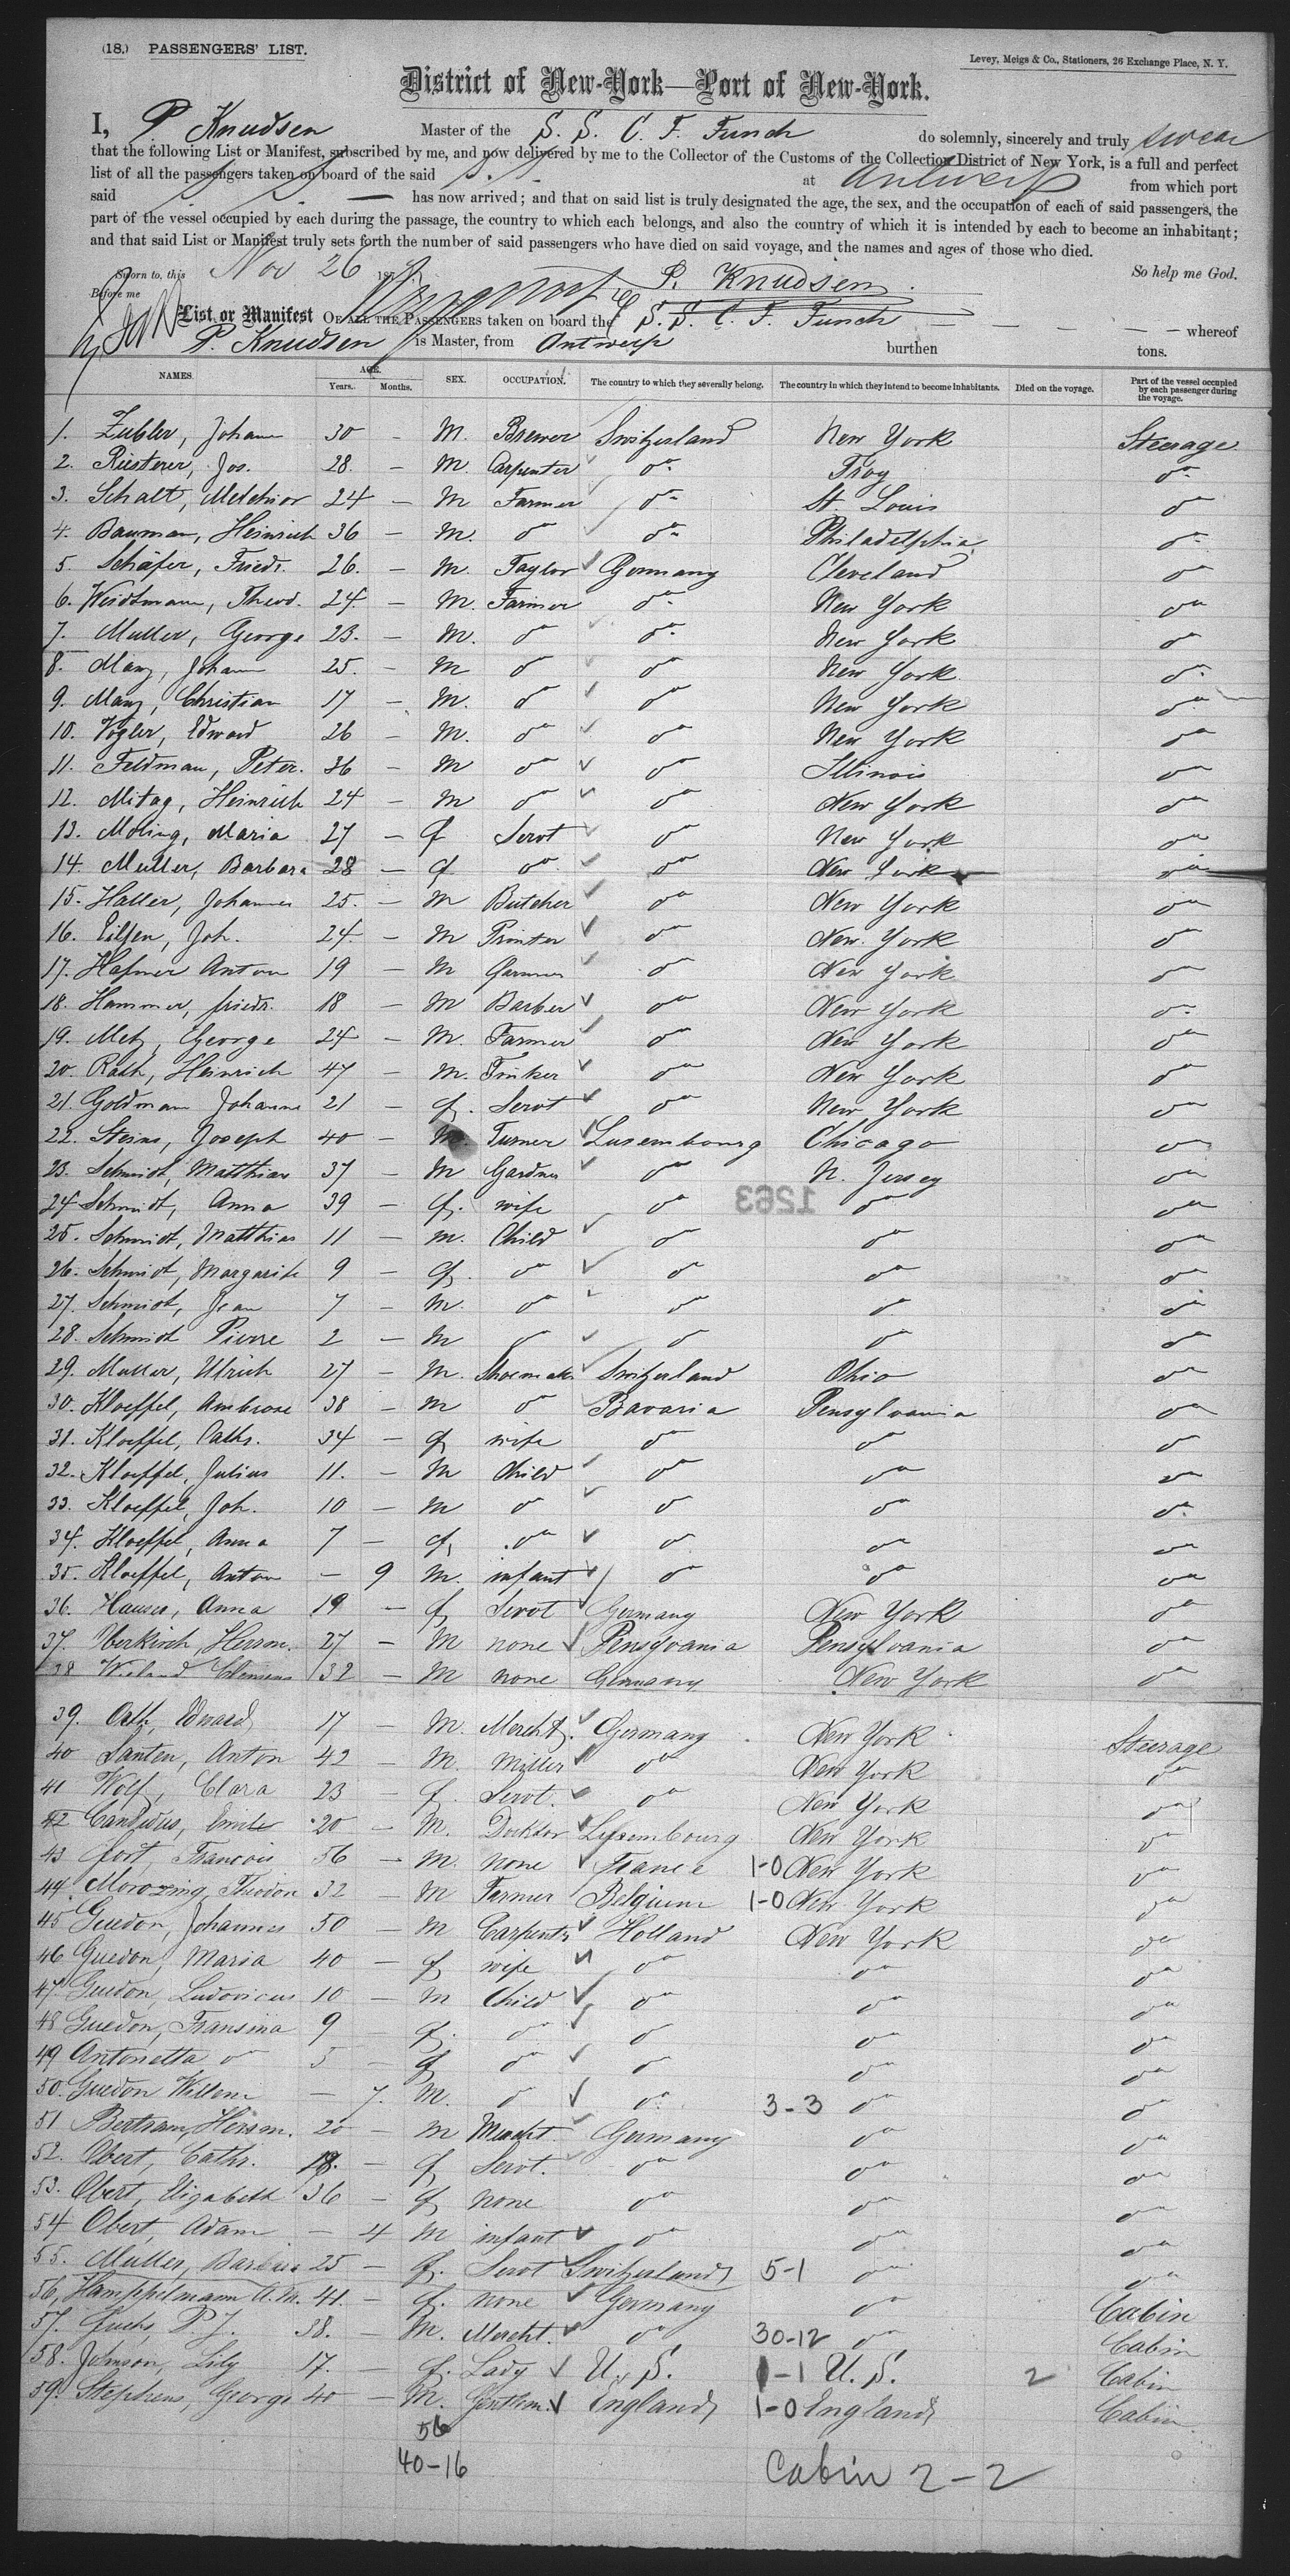 (18.) PASSENGERS' LIST.
Levey, Meigs & Co., Stationers, 26 Exchange Place, N. Y.
District of New-York—Port of New-York.
I, P. Knudsen Master of the S. S. C. F. Funch do solemnly, sincerely and truly swear
that the following List or Manifest, subscribed by me, and now delivered by me to the Collector of the Customs of the Collection District of New York, is a full and perfect
list of all the passengers taken on board of the said S. S. at Antwerp from which port
said S. S. — has now arrived; and that on said list is truly designated the age, the sex, and the occupation of each of said passengers, the
part of the vessel occupied by each during the passage, the country to which each belongs, and also the country of which it is intended by each to become an inhabitant;
and that said List or Manifest truly sets forth the number of said passengers who have died on said voyage, and the names and ages of those who died.
Sworn to, this Nov 26 187 So help me God.
Before me P. Knudsen
List or Manifest OF ALL THE PASSENGERS taken on board the S. S. C. F. Funch — — — — whereof
P. Knudsen is Master, from Antwerp burthen tons.
NAMES. AGE. Years. Months. SEX. OCCUPATION. The country to which they severally belong. The country in which they intend to become inhabitants. Died on the voyage. Part of the vessel occupied by each passenger during the voyage.
1. Zubler, Johann 30 — M. Brewer Switzerland New York Steerage
2. Riesterer, Jos. 28. — M. Carpenter do Troy do
3. Schalt, Melchior 24 — M Farmer do St. Louis do
4. Bauman, Heinrich 36 — M. do do Philadelphia do
5. Schäfer, Friedr. 26. — M. Taylor Germany Cleveland do
6. Weidtmann, Theod. 24. — M. Farmer do New York do
7. Muller, George 23. — M. do do New York do
8. Manz, Johann 25. — M do do New York do
9. Manz, Christian 17 — M. do do New York do
10. Vogler, Edward 26 — M. do do New York do
11. Feldman, Peter. 36 — M do do Illinois do
12. Mitag, Heinrich 24 — M do do New York do
13. Moling, Maria 27 — f Servt do New York do
14. Muller, Barbara 28 — f do do New York do
15. Haller, Johannes 25. — M Butcher do New York do
16. Eilsen, Joh. 24. — M Printer do New York do
17. Hafner Anton 19 — M do New York do
18. Hammer, friedr. 18 — M Barber do New York do
19. Metz, George 24 — M. Farmer do New York do
20. Rath, Heinrich 47 — M. Tinker do New York do
21. Goldman Johanna 21 — f. Servt do New York do
22. Steins, Joseph 40 — M. Turner Luxembourg Chicago do
23. Schmidt, Matthias 37 — M Gardner do N. Jersey do
24 Schmidt, Anna 39 — f. wife do do do
1263
25. Schmidt, Matthias 11 — m. Child do do do
26. Schmidt, Margarite 9 — f. do do do do
27. Schmidt, Jean 7 — M. do do do do
28. Schmidt Pierre 2 — M do do do do
29. Muller, Ulrich 27 — M. Shoemak. Switzerland Ohio do
30. Kloeffel, Ambrose 38 — M do Bavaria Pensylvania do
31. Kloeffel, Cathr. 34 — f wife do do do
32. Kloeffel, Julius 11. — M Child do do do
33. Kloeffel, Joh. 10 — M do do do do
34. Kloeffel, Anna 7 — f, do do do do
35. Kloeffel, Anton — 9 M. infant do do do
36. Hauser, Anna 19 — f Servt Germany New York do
37. Oberkirch, Herrm. 27 — M none Pensyvania Pensylvania do
38 Clemens 32 — M none Germany New York do
39. Edward 17 — M. Mercht. Germany New York Steerage
40 Santen, Anton 42 — M. Miller do New York do
41 Wolf, Clara 23 — f. Servt. do New York do
42 Candidus, Emile 20 — M. Docktor Luxembourg New York do
43 fort, Francois 56 — M. none France 1-0 New York do
44 Theodor 32 — M Farmer Belgium 1-0 New York do
45 Guedon, Johannes 50 — M Carpentr Holland New York do
46 Guedon, Maria 40 — f wife do do do
47. Guedon, Ludovicus 10 — M Child do do do
48 Guedon, Fransina 9 — f. do do do do
49 Antonetta do 5 — f do do do do
50. Guedon Willem — 7. M. do do 3-3 do do
51 Bertram, Herrm. 20 — M Mercht. Germany do do
52. Obert, Cathr. 18. — f Servt. do do do
53. Obert, Elizabeth 36 — f none do do do
54 Obert, Adam — 4 M infant do do do
55. Muller, Barbara 25 — f. Servt Switzerland 5-1 do do
56, Hamppelmann A. M. 41. — f. none Germany do Cabin
57. Fuchs, P. J. 38. — M. Mercht. do 30-12 do Cabin
58. Johnson, Lily 17. — f. Lady U. S. 1-1 U. S. 2 Cabin
59. Stephens, George 40 — M. Gentlem. England 1-0 England Cabin
56
40-16 Cabin 2-2